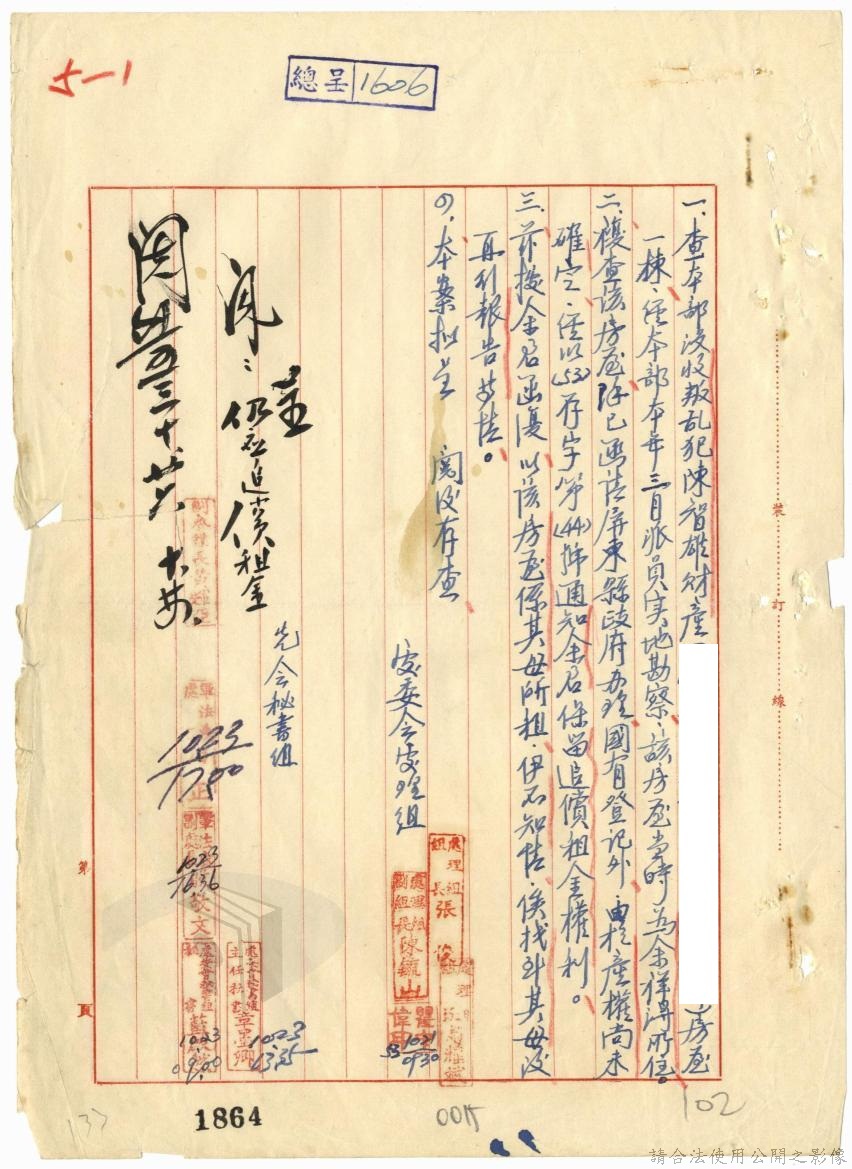 5-1
總呈 1606
一、查本部沒收叛乱犯陳智雄財產
房屋
一棟，經本部本年三月派員实地勘察，該房屋当時為余祥得所住。
二、複查该房屋除已函請屏東縣政府办理國有登記外，由於產權尚未
確定，經以(53)存字第(44)號通知余君保留追償租金權利。
三、茲接余君函復，以該房屋係其母所租，伊不知情，俟找到其母後
再行報告等情。
四、本案拟呈　閱後存查
處委会處理組
先会秘書組
呈
仍应追償租金
閱
處理組組長張
處理組副組長陳毓山
1021
0930
53
1023
1335
1023
0900
1023
1636
1023
1700
敬文
主任秘書章墨卿
裝
訂
線
第
頁
1864
102
137
請合法使用公開之影像